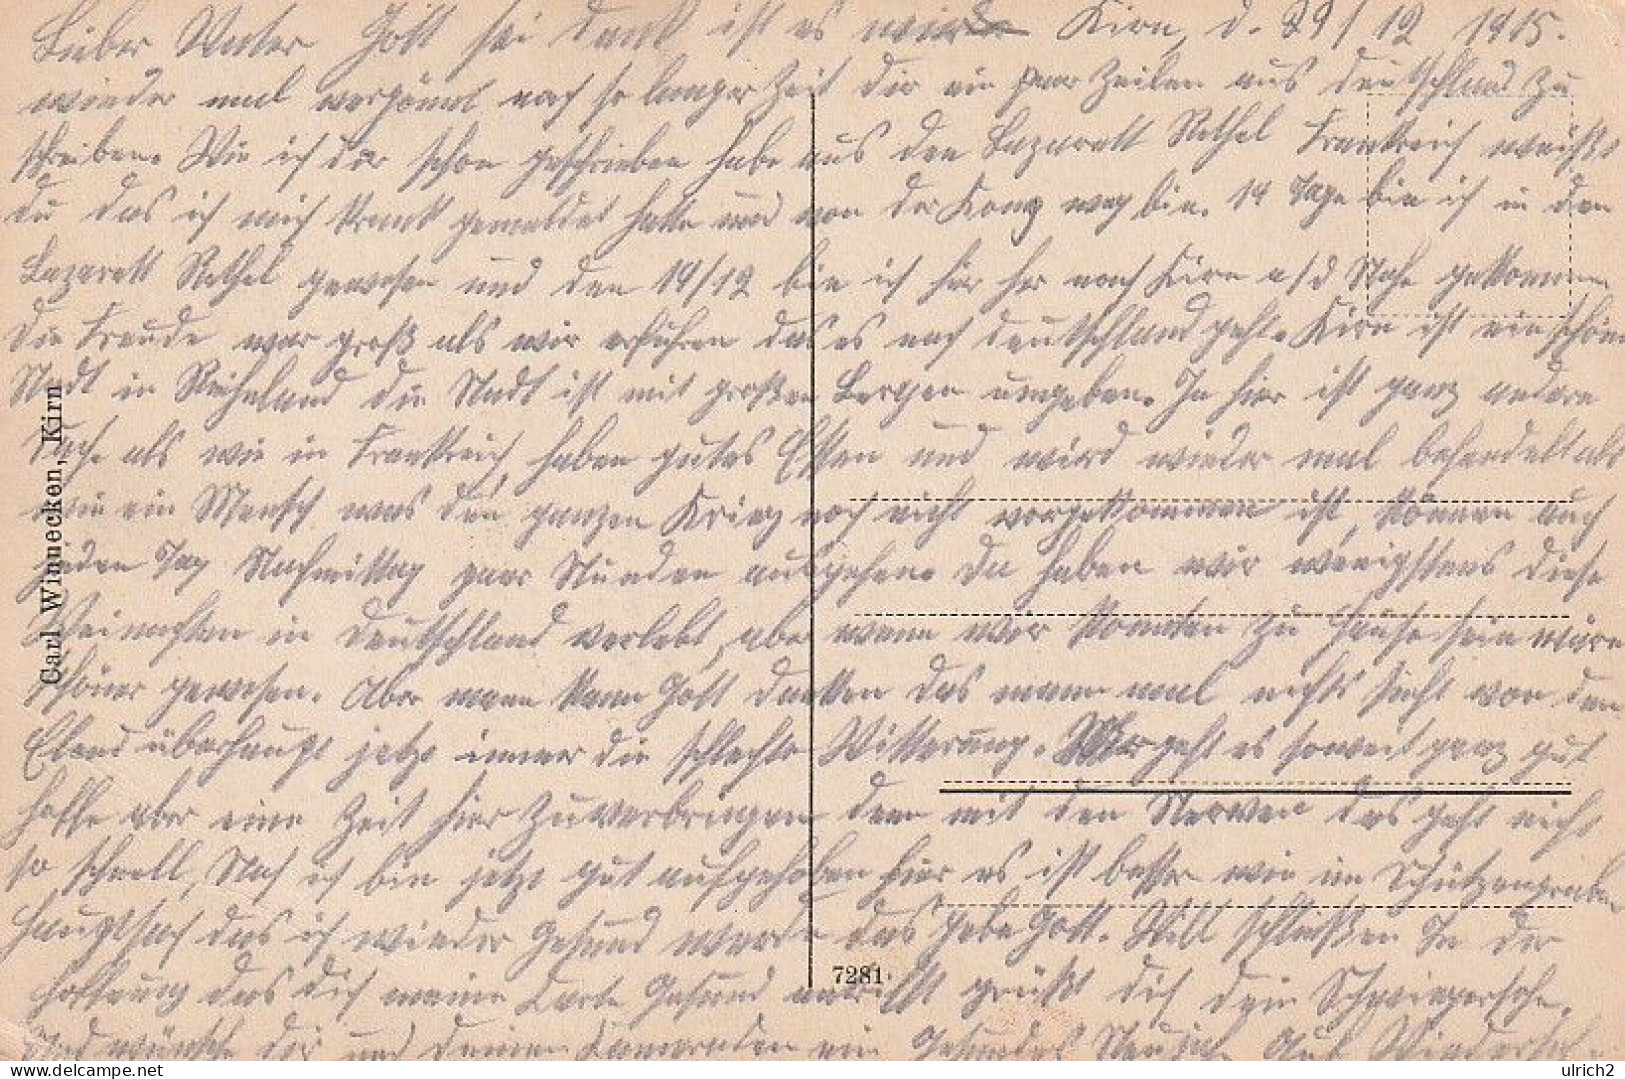 Lieber Vater Gott sei dank ist es wieder Kirn, d. 29/12 1915.
wieder mal vergönnt nach so langer Zeit dir ein paar Zeilen aus Deutschland zu
schreiben. Wie ich dir schon geschrieben habe aus den Lazarett Rethel Frankreich weißt
du das ich mich krank gemeldet hatte und von der Komp weg bin. 14 Tage bin ich in den
Lazarett Rethel gewesen und den 14/12 bin ich hier her nach Kirn a/d Nahe gekommen
Die Freude war groß als wir erfuhren das es nach Deutschland geht. Kirn ist ein schöne
Stadt in Reihnland die Stadt ist mit großen Bergen umgeben. Ja hier ist ganz andere
Sache als wie in Frankreich, haben gutes Essen und wird wieder mal behandelt als
wie ein Mensch was den ganzen Krieg noch nicht vorgekommen ist, können auch
jeden Tag Nachmittag paar Stunden ausgehen. Da haben wir wenigstens diese
Weinachten in Deutschland verlebt, aber wenn wir konnten zu Hause sein wäre
schöner gewesen. Aber mann kann Gott danken das mann mal nichts sieht von den
Elend überhaupt jetzt immer die schlechte Witterung. Mir geht es soweit ganz gut
hoffe aber eine Zeit hier zuverbringen denn mit den Nerven das geht nicht
so schnell, Na ich bin jetzt gut aufgehoben hier es ist besser wie im Schützengraben
Hauptsach das ich wieder Gesund werde das gebe Gott. Will schließen In der
Hoffnung das dich meine Karte Gesund antrifft grüßt dich dein Schwiegersohn.
und wünsche dir und deinen Kameraden ein Gesundes Neujahr Auf Wiedersehn
Carl Winnecken, Kirn
7281
delcampe.net
ulrich2